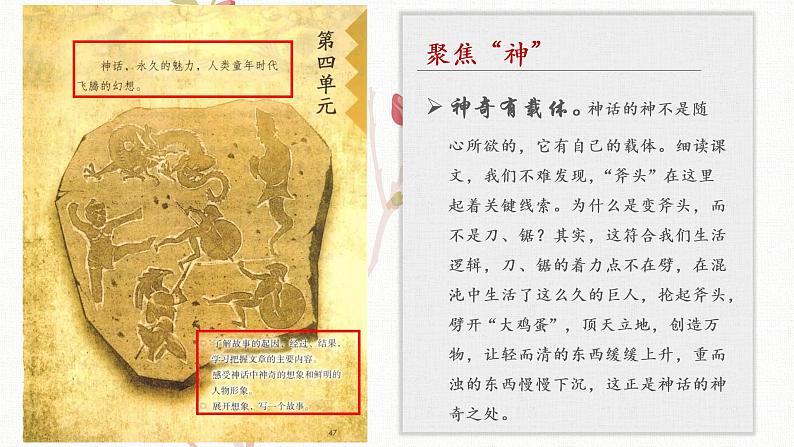 第四单元
神话，永久的魅力，人类童年时代
飞腾的幻想。
了解故事的起因、经过、结果，
学习把握文章的主要内容。
感受神话中神奇的想象和鲜明的
人物形象。
展开想象，写一个故事。
47
聚焦“神”
神奇有载体。神话的神不是随
心所欲的，它有自己的载体。细读课
文，我们不难发现，“斧头”在这里
起着关键线索。为什么是变斧头，而
不是刀、锯？其实，这符合我们生活
逻辑，刀、锯的着力点不在劈，在混
沌中生活了这么久的巨人，抡起斧头，
劈开“大鸡蛋”，顶天立地，创造万
物，让轻而清的东西缓缓上升，重而
浊的东西慢慢下沉，这正是神话的神
奇之处。